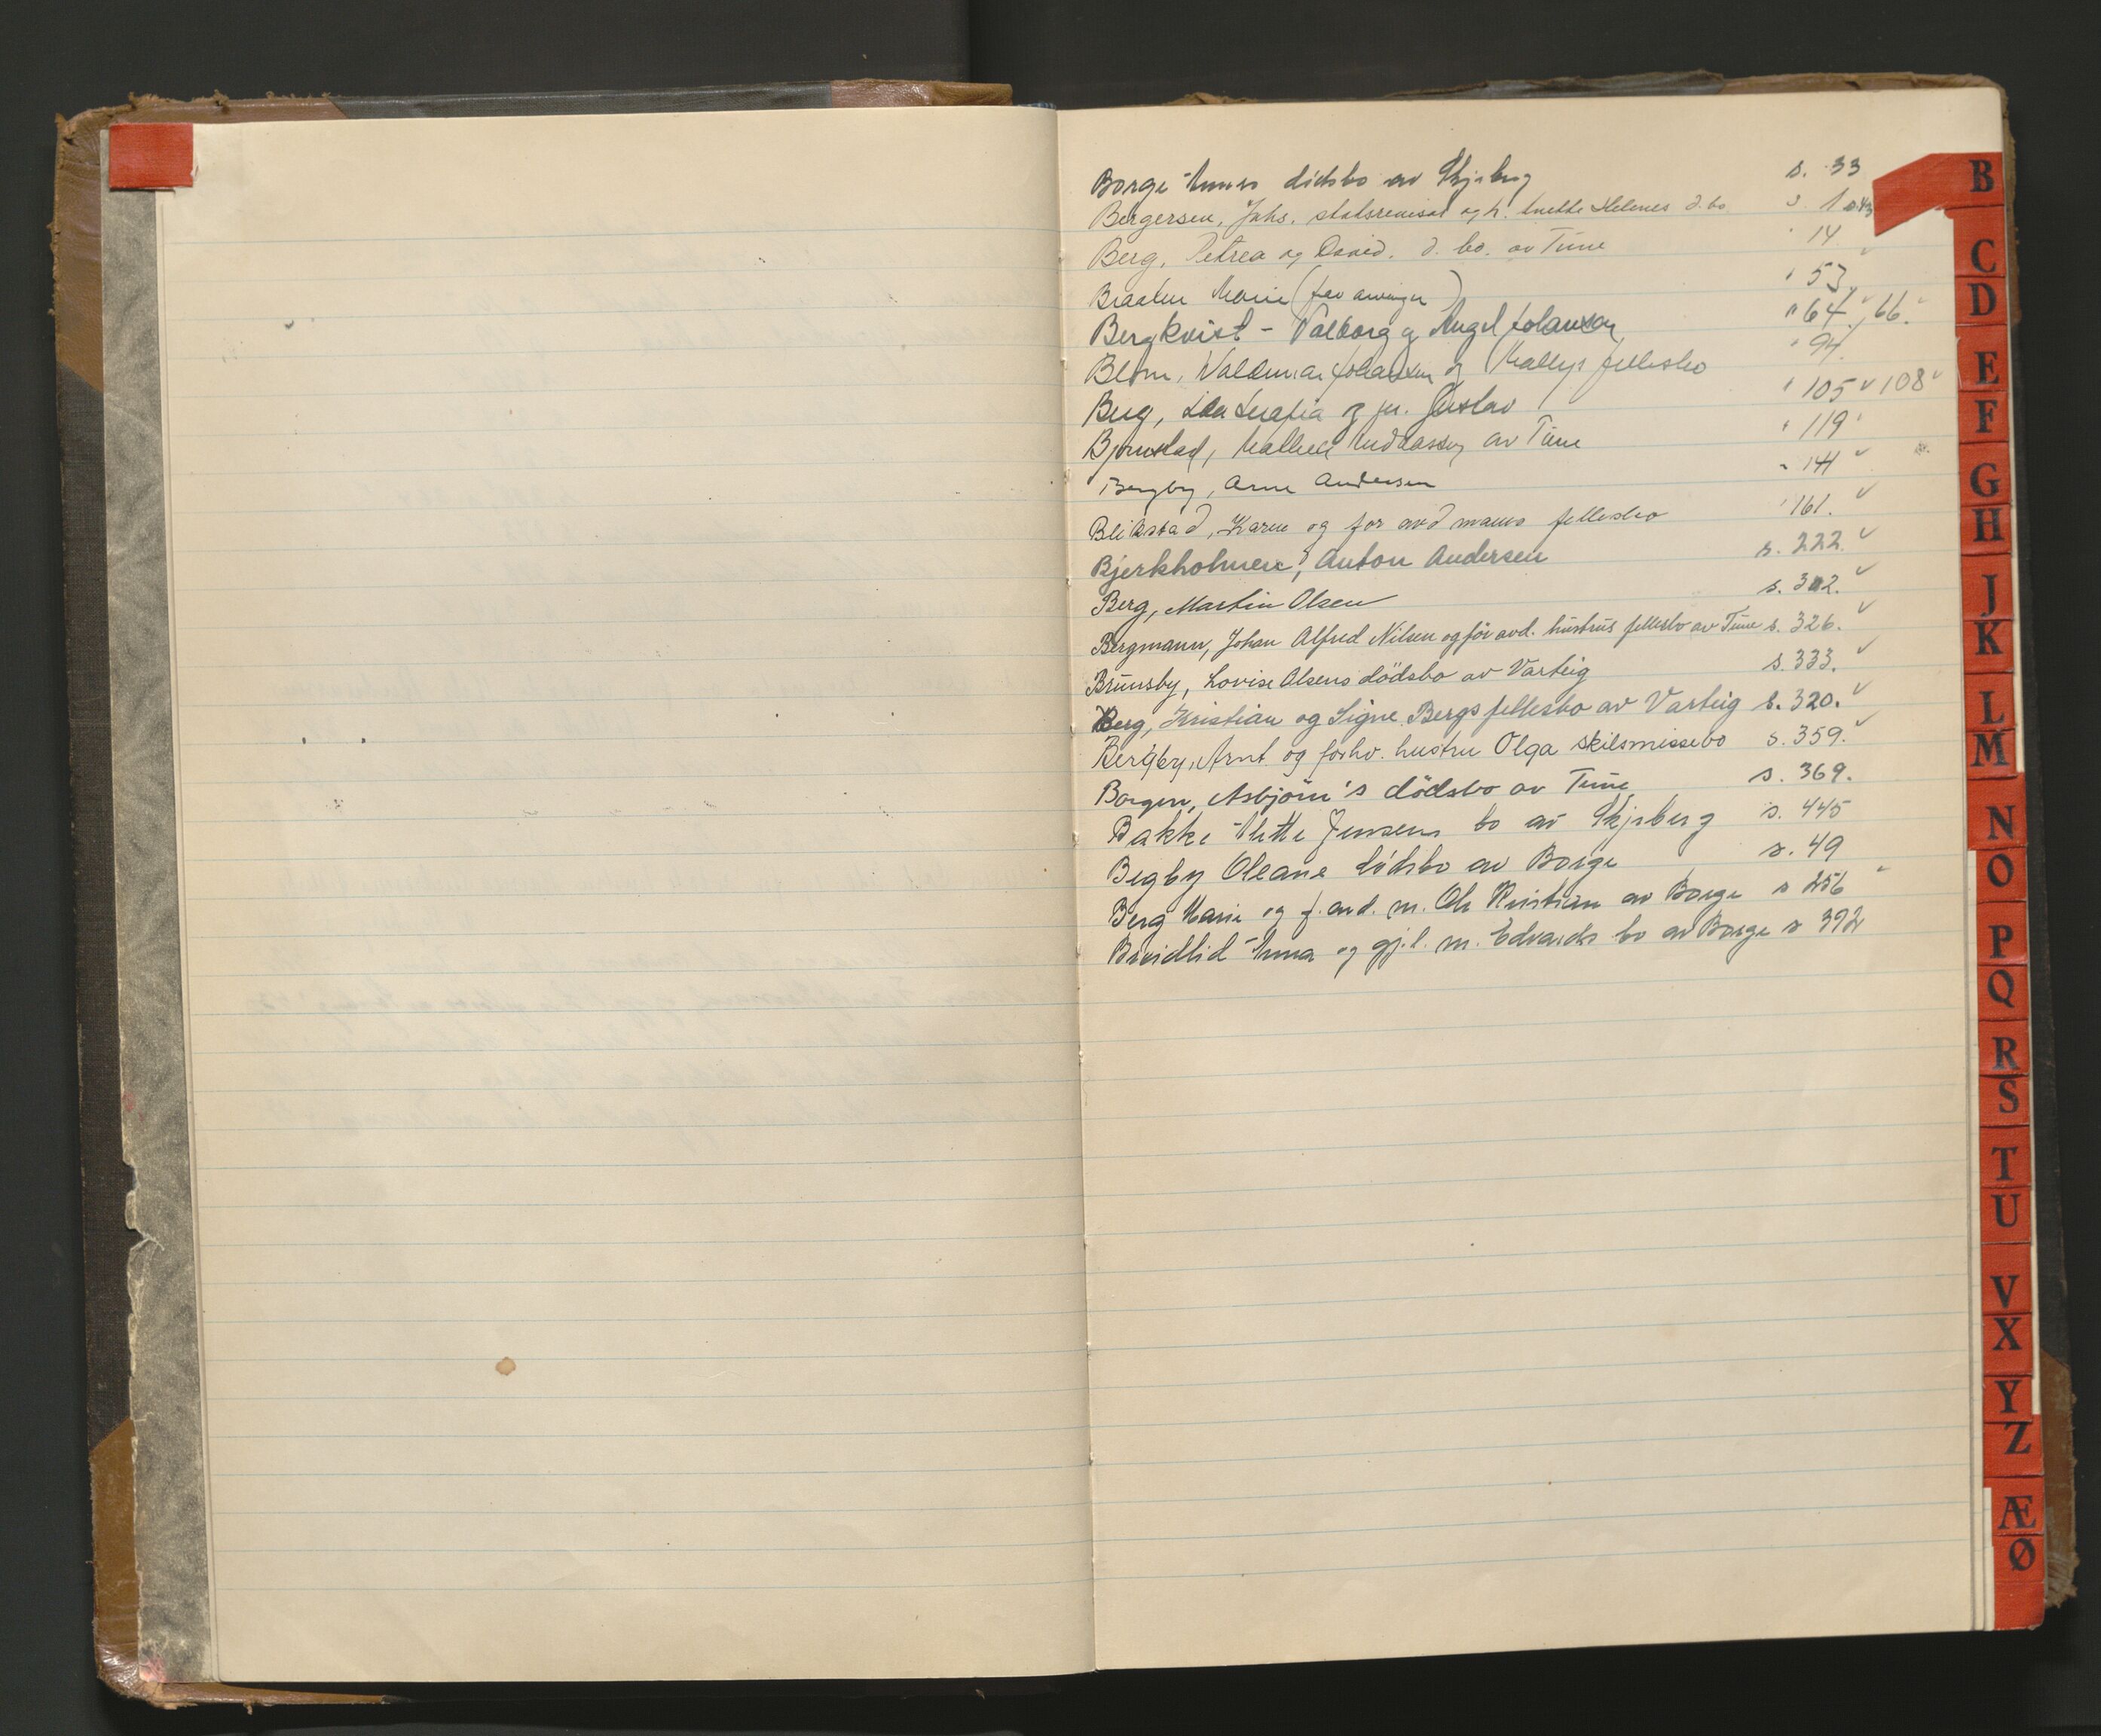 Borge Annas dødsbo av Skjeberg s. 33
Bergersen, Johs. statsrevisor og h. Anette Helenes d.bo s. 1 s.43
Berg, Petrea og David. d. bo. av Tune " 14
Braaten Marie (fav arvinger) " 53
Bergkvist - Valborg og Johansen " 64, 66.
Blom, Valdemar Johansen og Mallys fellesbo " 94.
Berg, og Gustav " 105 108
Bjørnstad, av Tune " 119
Bergby, Arne Andersen " 141
Blikstad, Karen og for avd manns fellesbo " 161.
Bjerkholmen, Anton Andersen s. 222.
Berg, Martin Olsen s. 302.
Bergmann, Johan Alfred Nilsen og før avd. hustrus fellesbo av Tune s. 326.
Brunsby, Lovise Olsens dödsbo av Varteig s. 333.
Berg, Kristian og Signe Bergs fellesbo av Varteig s. 320.
Bergby, Arnt og forhv. hustru Olga skilsmissebo s. 359.
Borgen, Asbjörn's dödsbo av Tune s. 369.
Bakke Jensens bo av Skjeberg s. 445
Begby Oleane dødsbo av Borge s. 49
Berg Marie og f. avd. m. Ole Kristian av Borge s 256
Breidlid Anna og gj.l. m. Edvards bo av Borge s 392
B
C
D
E
F
G
H
J
K
L
M
N
O
P
Q
R
S
T
U
V
X
Y
Z
Æ
Ø